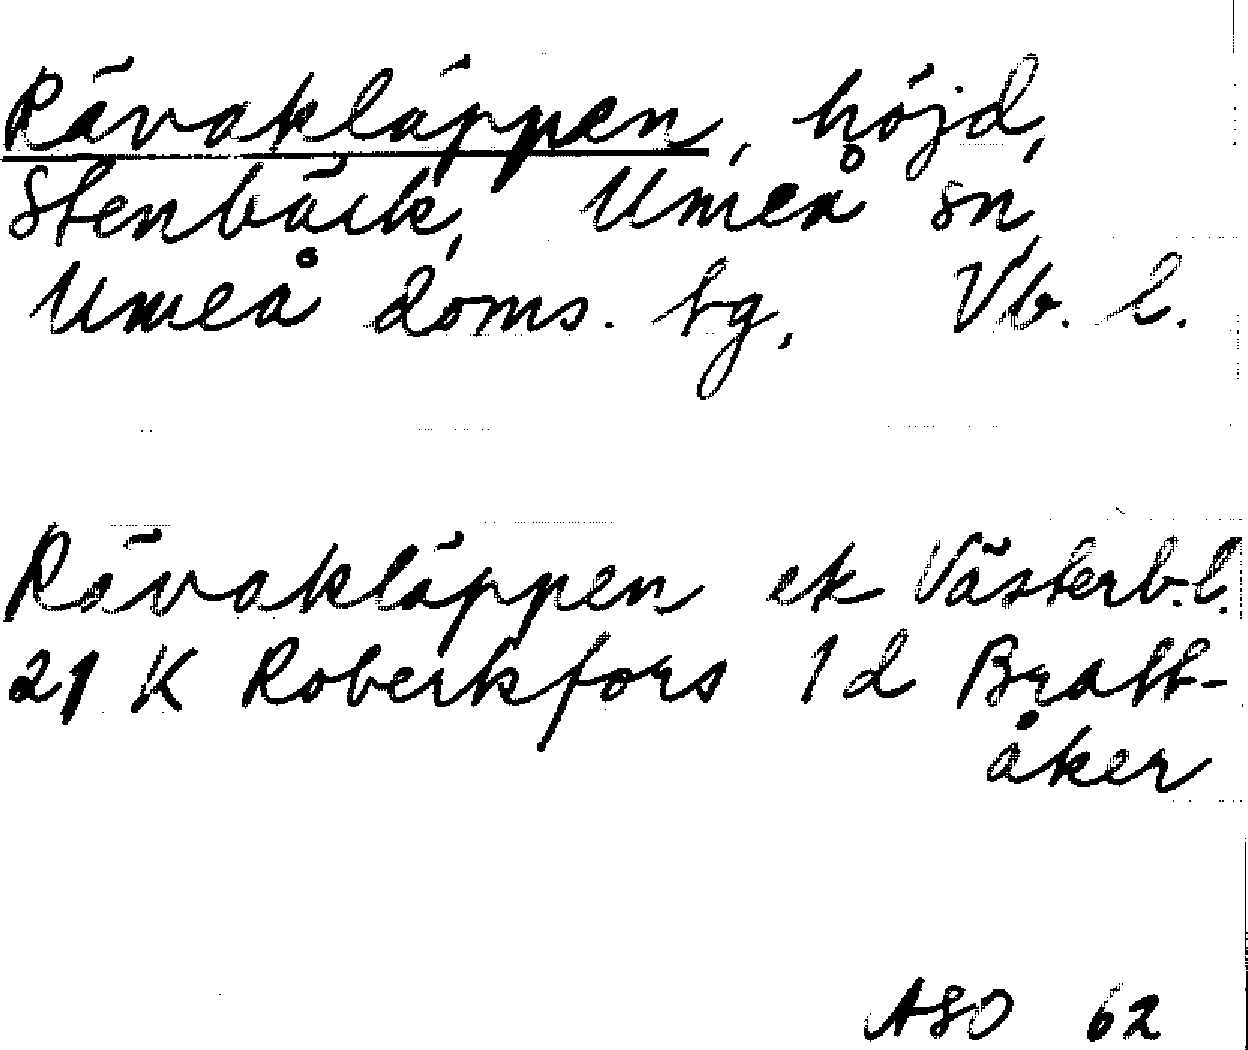 Rävakläppen, höjd,
Stenbäck, Umeå sn,
Umeå doms. bg, Vb. l.
Rävakläppen ek Västerb.l.
21 K Robertsfors 1 d Bratt-
åker
ASO 62